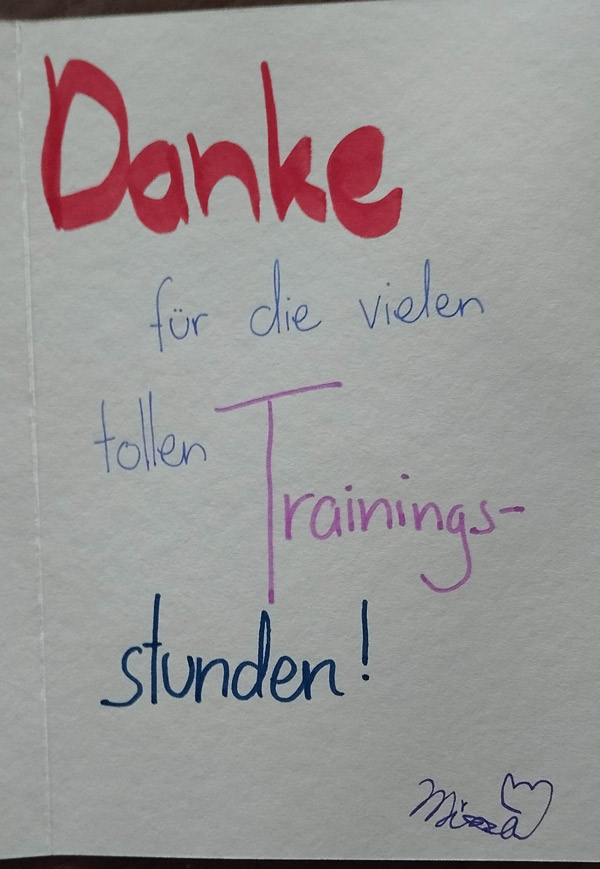 Danke
für die vielen
tollen Trainings-
stunden!